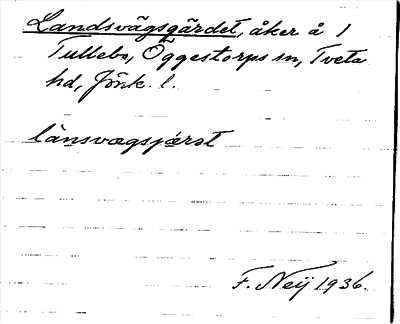 Landsvägsgärdet, åker å 1
Tullebo, Öggestorps sn, Tveta
hd, Jönk. l.
lànsvægsjæ̀rst
F. Neij 1936.